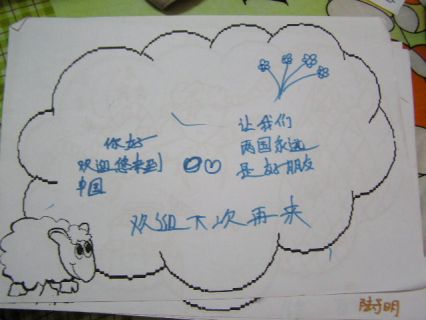 你好
欢迎您来到
中国
让我们
两国永远
是好朋友
欢迎下次再来